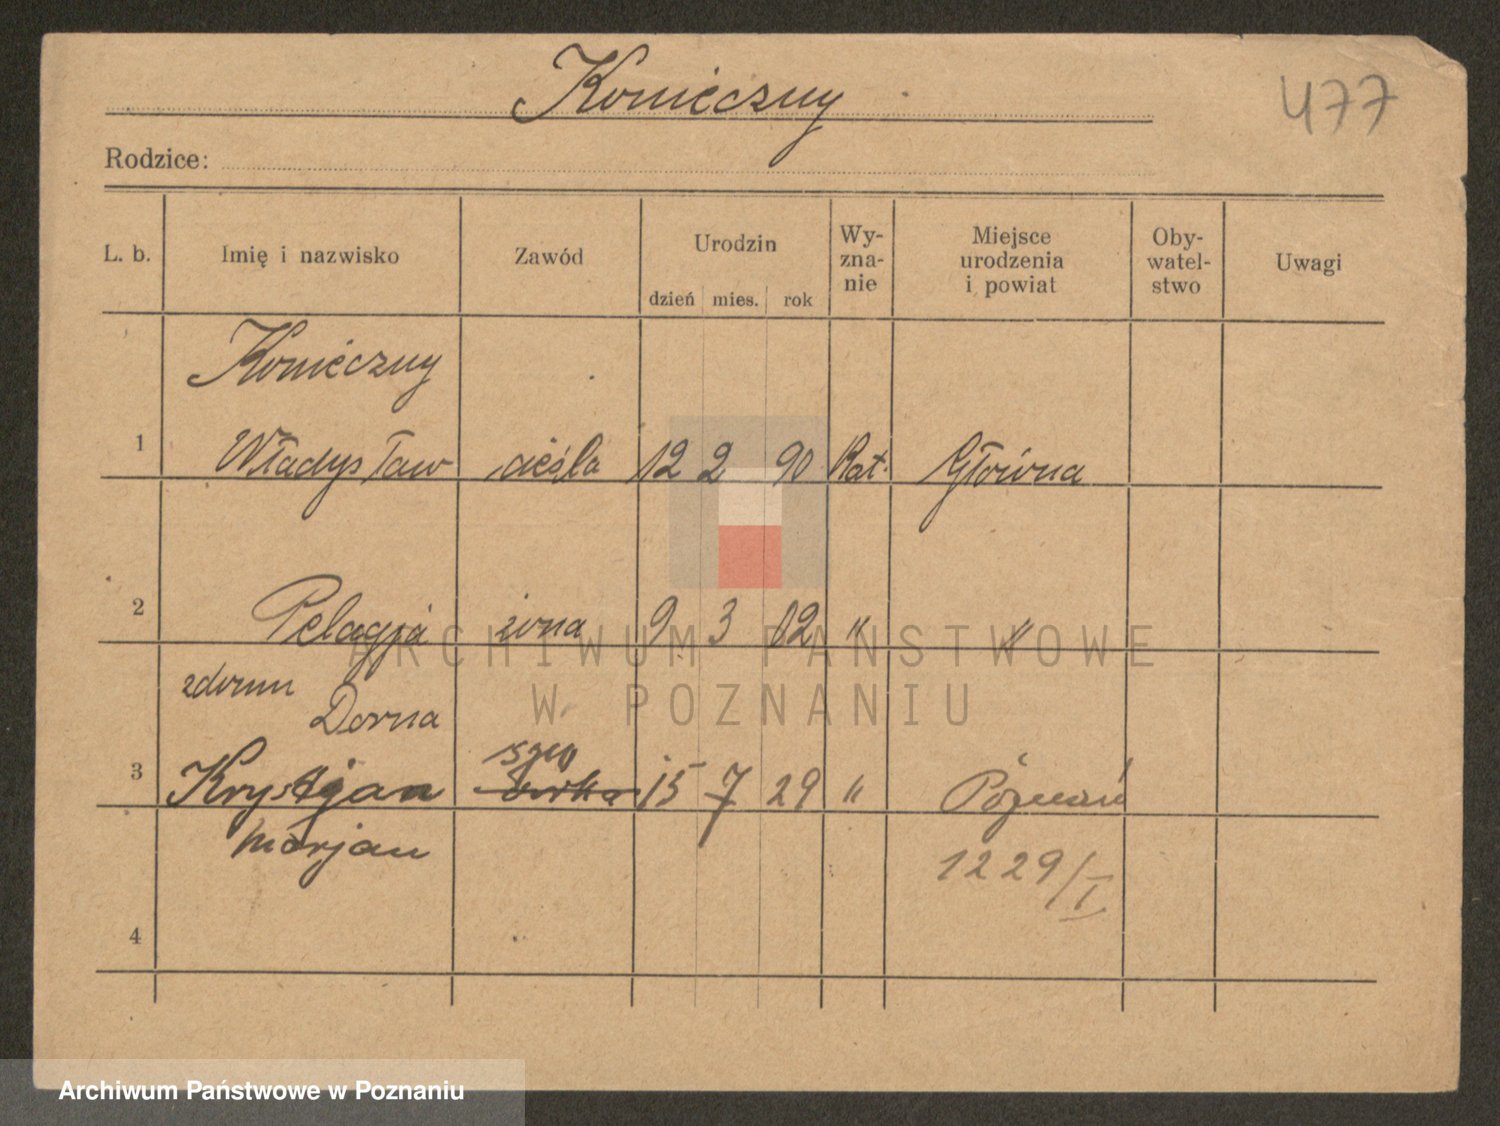 Konieczny
477
Rodzice:
L. b. Imię i nazwisko Zawód Urodzin dzień mies. rok Wy-zna-nie Miejsce urodzenia i powiat Oby-watel-stwo Uwagi
Konieczny
1 Władysław cieśla 12 2 90 Kat. Główna
2 Pelagja żona 9 3 02 " "
zdomu
Dorna
syn
3 Krystjan 15 7 29 " Poznań
Marjan
1229/I
4
ARCHIWUM PAŃSTWOWE
W POZNANIU
Archiwum Państwowe w Poznaniu